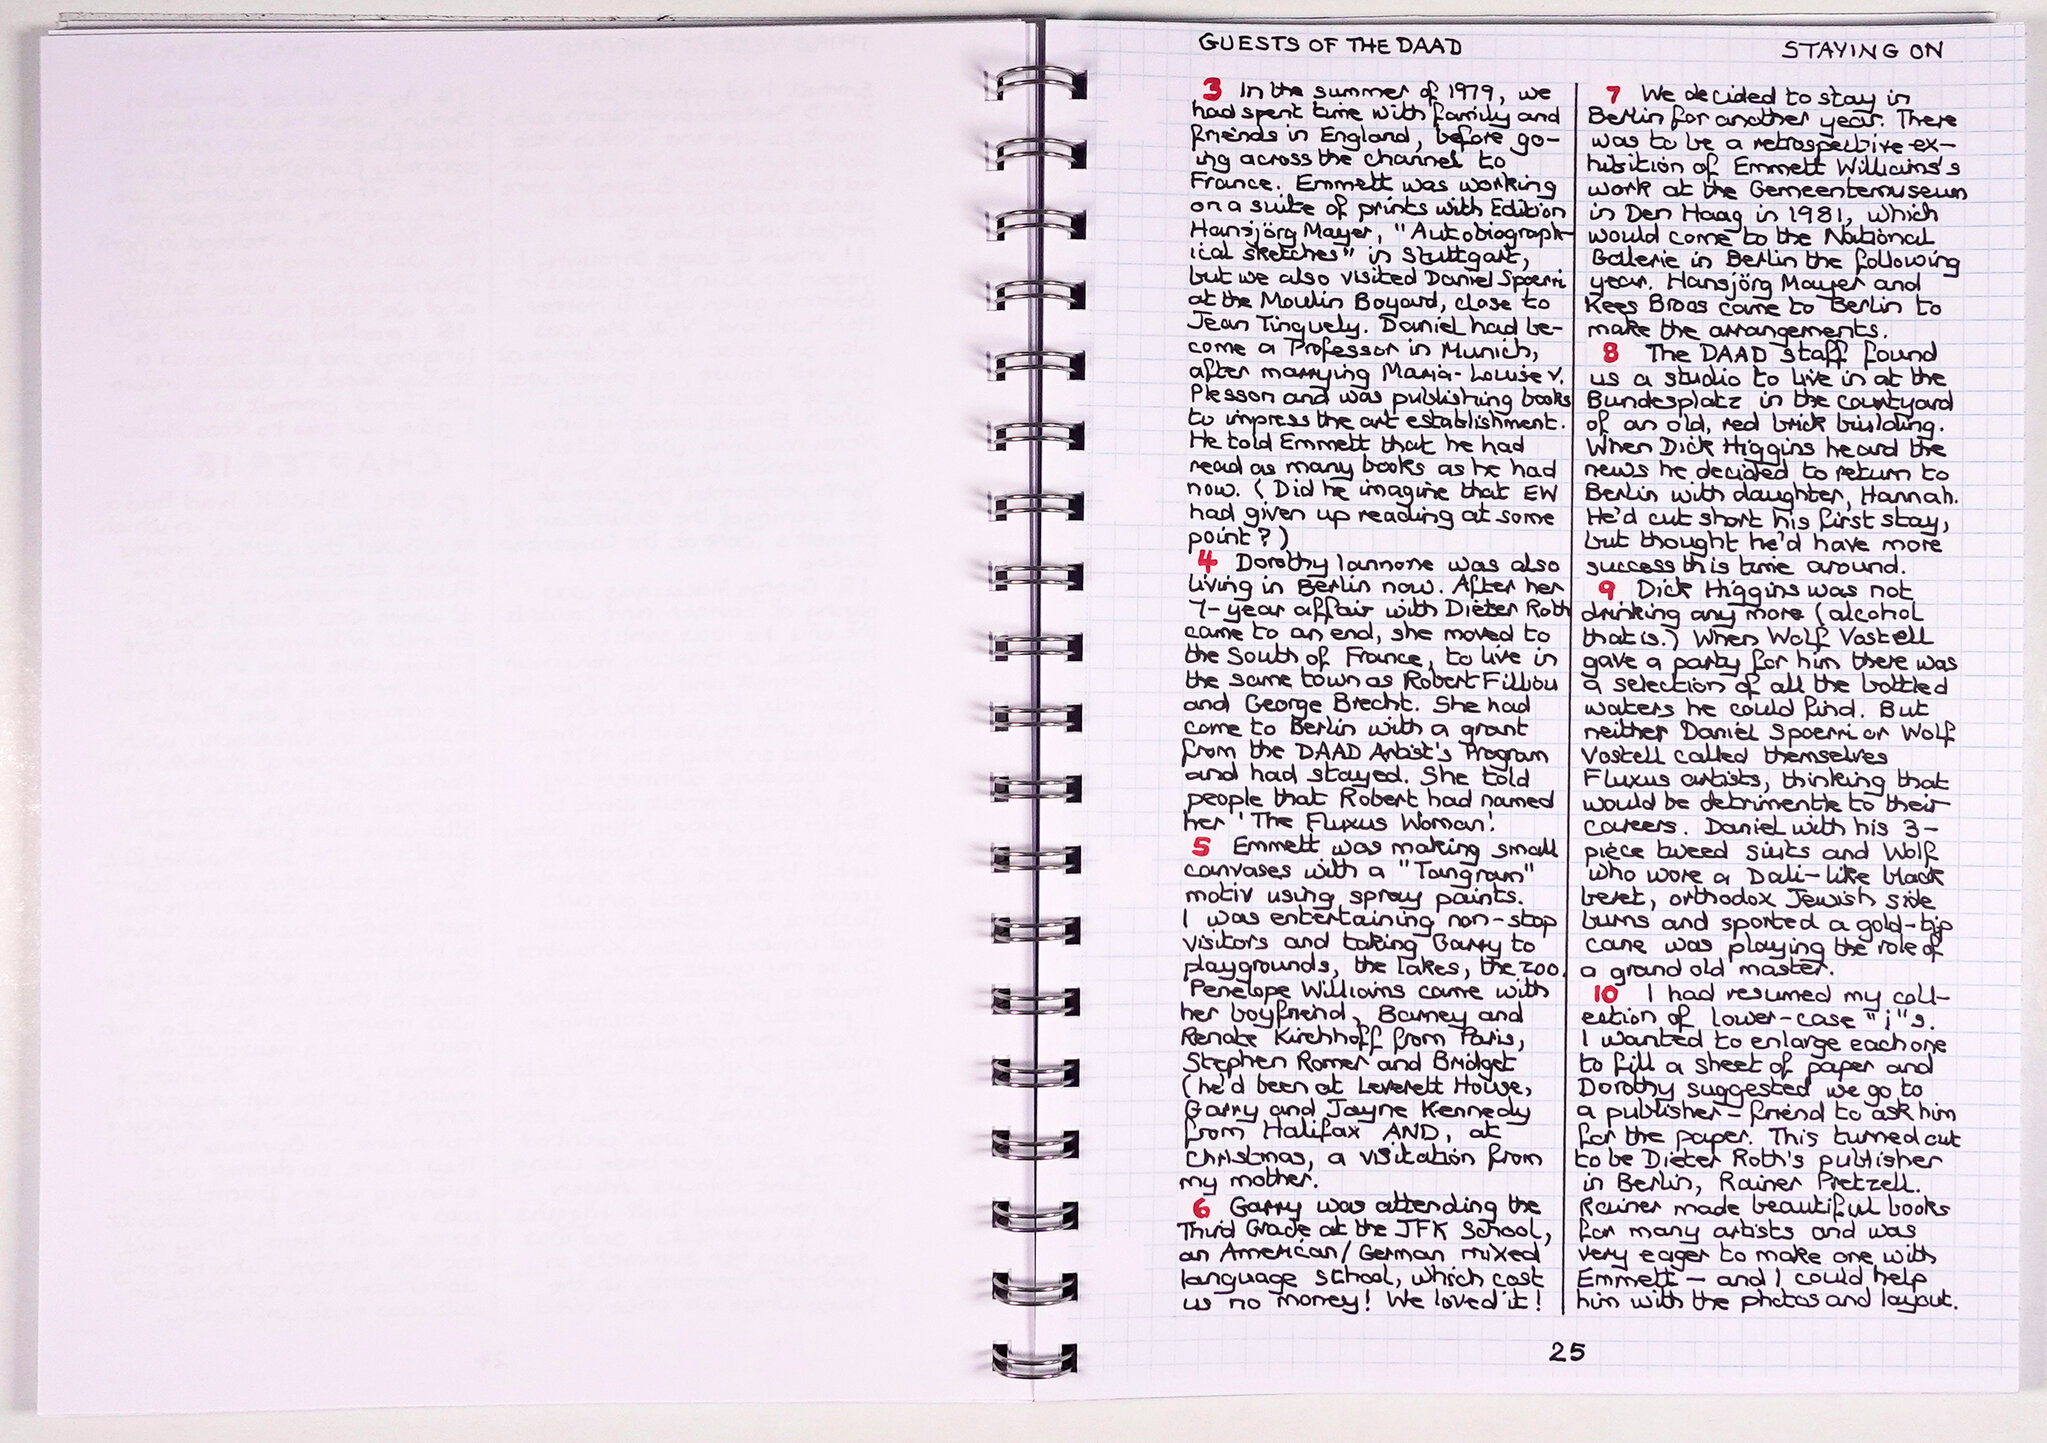 GUESTS OF THE DAAD
STAYING ON
3 In the summer of 1979, we
had spent time with family and
friends in England, before go-
ing across the channel to
France. Emmett was working
on a suite of prints with Edition
Hansjörg Mayer, "Autobiograph-
ical sketches" in Stuttgart,
but we also visited Daniel Spoerri
at the Moulin Boyard, close to
Jean Tinguely. Daniel had be-
come a Professor in Munich,
after marrying Maria-Louise v.
Plesson and was publishing books
to impress the art establishment.
He told Emmett that he had
read as many books as he had
now. (Did he imagine that EW
had given up reading at some
point?)
4 Dorothy Iannone was also
living in Berlin now. After her
7-year affair with Dieter Roth
came to an end, she moved to
the South of France, to live in
the same town as Robert Filliou
and George Brecht. She had
come to Berlin with a grant
from the DAAD Artist's Program
and had stayed. She told
people that Robert had named
her 'The Fluxus Woman'.
5 Emmett was making small
canvases with a "Tangram"
motiv using spray paints.
I was entertaining non-stop
visitors and taking Garry to
playgrounds, the lakes, the zoo.
Penelope Williams came with
her boyfriend, Barney and
Renate Kirchhoff from Paris,
Stephen Romer and Bridget
(he'd been at Leverett House,
Garry and Jayne Kennedy
from Halifax AND, at
Christmas, a visitation from
my mother.
6 Garry was attending the
Third Grade at the JFK School,
an American/German mixed
language school, which cost
us no money! We loved it!
7 We decided to stay in
Berlin for another year. There
was to be a retrospective ex-
hibition of Emmett Williams's
work at the Gemeentemuseum
in Den Haag in 1981, which
would come to the National
Gallerie in Berlin the following
year. Hansjörg Mayer and
Kees Broos came to Berlin to
make the arrangements.
8 The DAAD staff found
us a studio to live in at the
Bundesplatz in the courtyard
of an old, red brick building.
When Dick Higgins heard the
news he decided to return to
Berlin with daughter, Hannah.
He'd cut short his first stay,
but thought he'd have more
success this time around.
9 Dick Higgins was not
drinking any more (alcohol
that is.) When Wolf Vostell
gave a party for him there was
a selection of all the bottled
waters he could find. But
neither Daniel Spoerri or Wolf
Vostell called themselves
Fluxus artists, thinking that
would be detrimentle to their
careers. Daniel with his 3-
piece tweed suits and Wolf
who wore a Dali-like black
beret, orthodox Jewish side
burns and sported a gold-tip
cane was playing the role of
a grand old master.
10 I had resumed my coll-
ection of lower-case "i"s.
I wanted to enlarge each one
to fill a sheet of paper and
Dorothy suggested we go to
a publisher-friend to ask him
for the paper. This turned out
to be Dieter Roth's publisher
in Berlin, Rainer Pretzell.
Rainer made beautiful books
for many artists and was
very eager to make one with
Emmett – and I could help
him with the photos and layout.
25